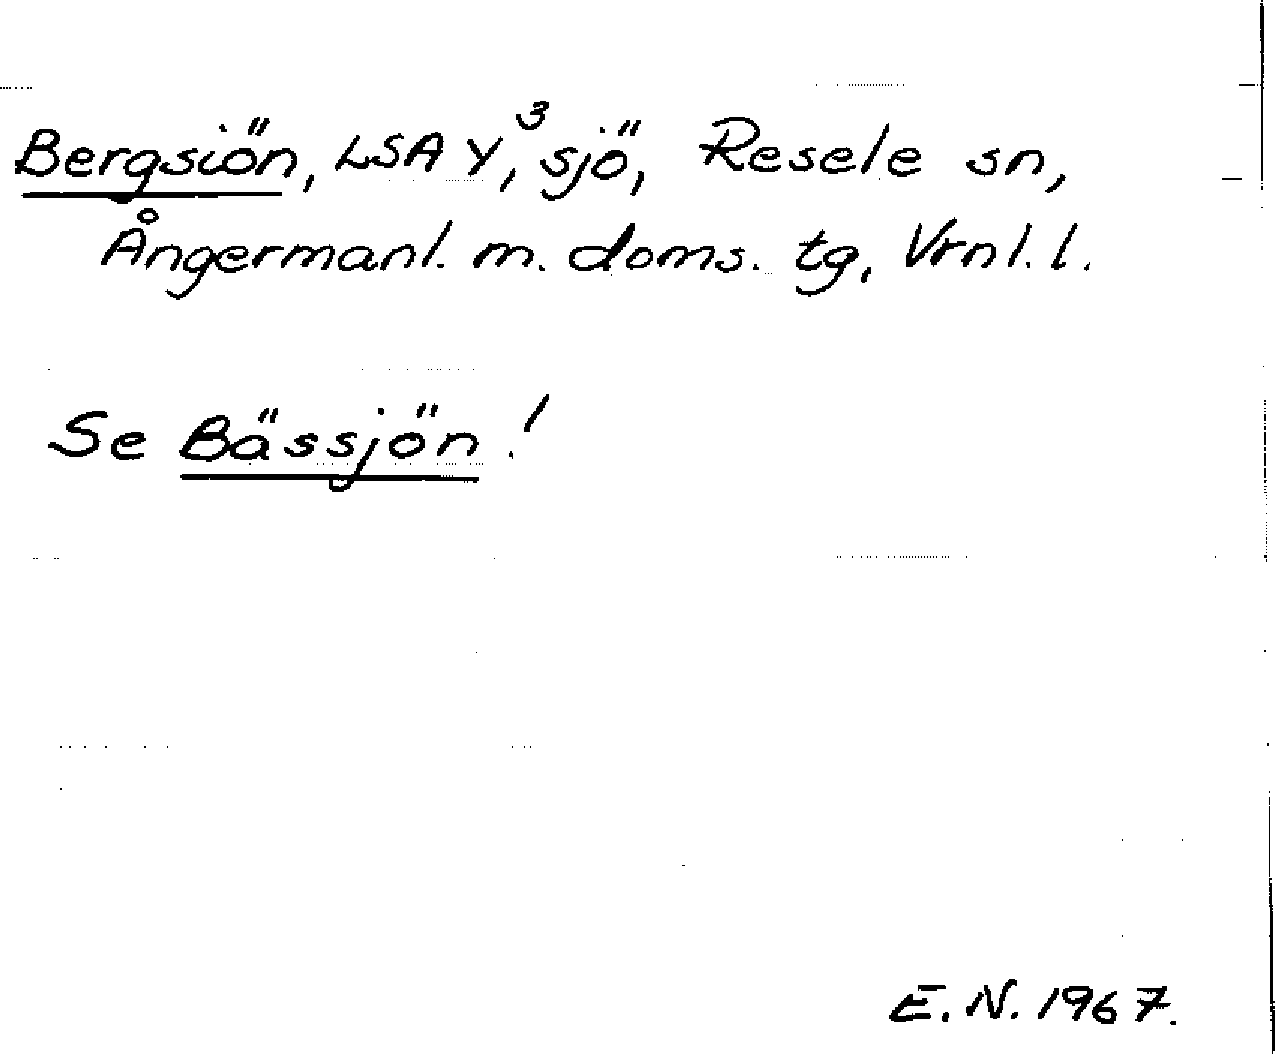 Bergsiön, LSA Y,³ sjö, Resele sn,
Ångermanl. m. doms. tg, Vrnl. l.
Se Bässjön!
E. N. 1967.